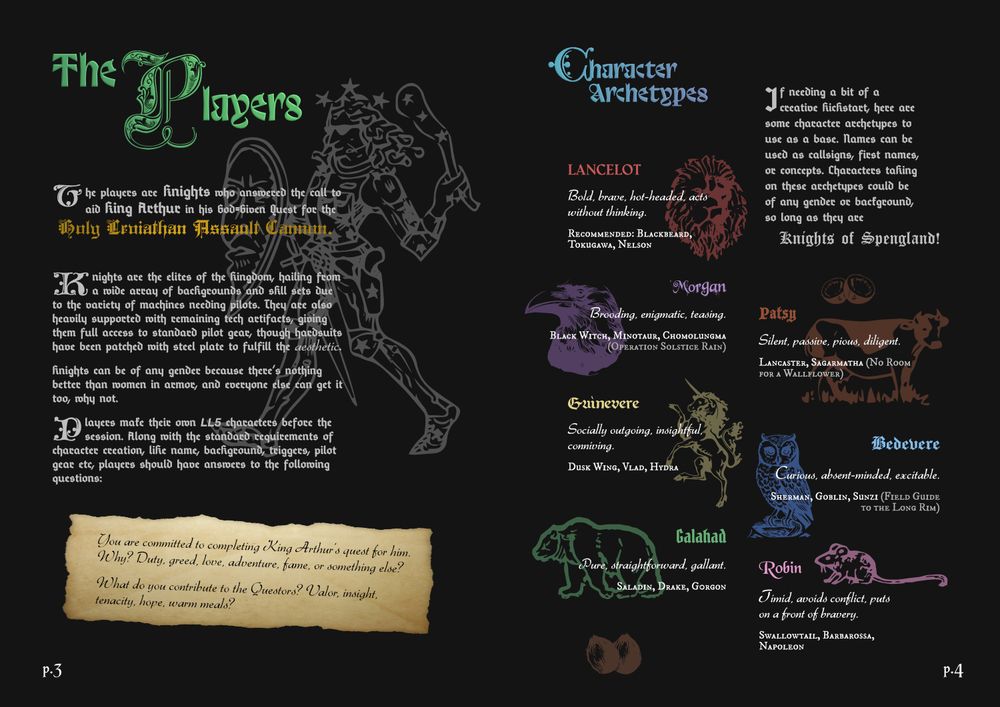 The Players
The players are knights who answered the call to
aid King Arthur in his God-Given Quest for the
Holy Leviathan Assault Cannon.
Knights are the elites of the kingdom, hailing from
a wide array of backgrounds and skill sets due
to the variety of machines needing pilots. They are also
heavily supported with remaining tech artifacts, giving
them full access to standard pilot gear, though hardsuits
have been patched with steel plate to fulfill the aesthetic.
Knights can be of any gender because there's nothing
better than women in armor, and everyone else can get it
too, why not.
Players make their own LL5 characters before the
session. Along with the standard requirements of
character creation, like name, background, triggers, pilot
gear etc, players should have answers to the following
questions:
You are committed to completing King Arthur's quest for him.
Why? Duty, greed, love, adventure, fame, or something else?
What do you contribute to the Questors? Valor, insight,
tenacity, hope, warm meals?
p.3
Character
Archetypes
If needing a bit of a
creative kickstart, here are
some character archetypes to
use as a base. Names can be
used as callsigns, first names,
or concepts. Characters taking
on these archetypes could be
of any gender or background,
so long as they are
Knights of Spengland!
LANCELOT
Bold, brave, hot-headed, acts
without thinking.
Recommended: Blackbeard,
Tokugawa, Nelson
Morgan
Brooding, enigmatic, teasing.
Black Witch, Minotaur, Chomolungma
(Operation Solstice Rain)
Guinevere
Socially outgoing, insightful,
conniving.
Dusk Wing, Vlad, Hydra
Galahad
Pure, straightforward, gallant.
Saladin, Drake, Gorgon
Patsy
Silent, passive, pious, diligent.
Lancaster, Sagarmatha (No Room
for a Wallflower)
Bedevere
Curious, absent-minded, excitable.
Sherman, Goblin, Sunzi (Field Guide
to the Long Rim)
Robin
Timid, avoids conflict, puts
on a front of bravery.
Swallowtail, Barbarossa,
Napoleon
p.4